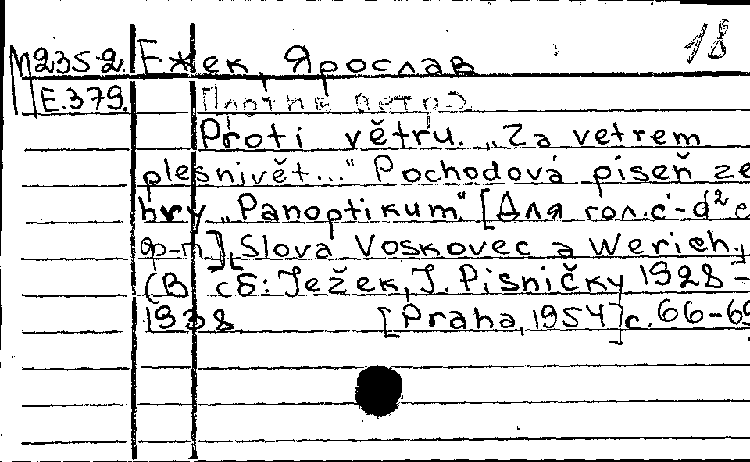 18
М2352 Ежек, Ярослав
Е.379. Против ветра
Proti větru. „Za vetrem
plesnivět...“ Pochodová píseň ze
hry „Panoptikum“ [Для гол. c'-d² с
ф-п], Slova Voskovec a Werich,
(В сб: Ježek, J. Písničky 1928-
1938 [Praha, 1954] с. 66-69